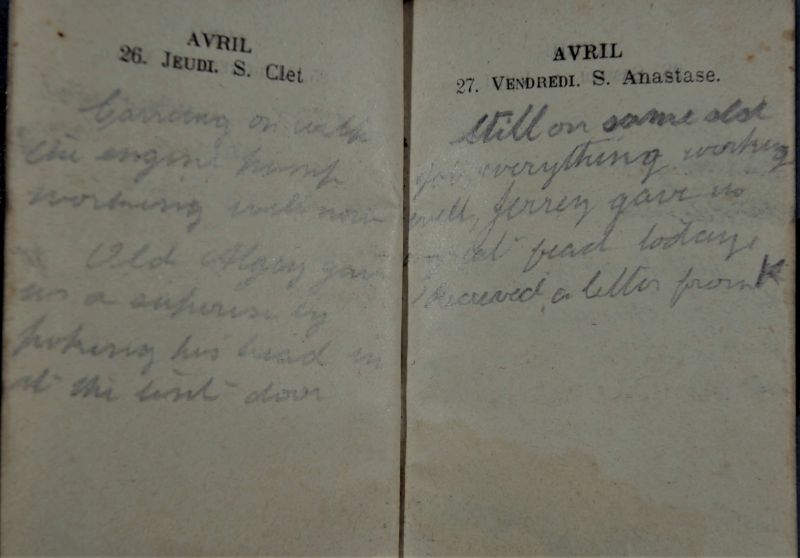 AVRIL
26. JEUDI. S. Clet
Carrying on with
the engine pump
working well now
Old Algay gave
us a surprise by
poking his head in
at the tent door
AVRIL
27. VENDREDI. S. Anastase.
Still on same old
job, everything working
well, Jerrey gave us
at fead today,
Received a letter from K